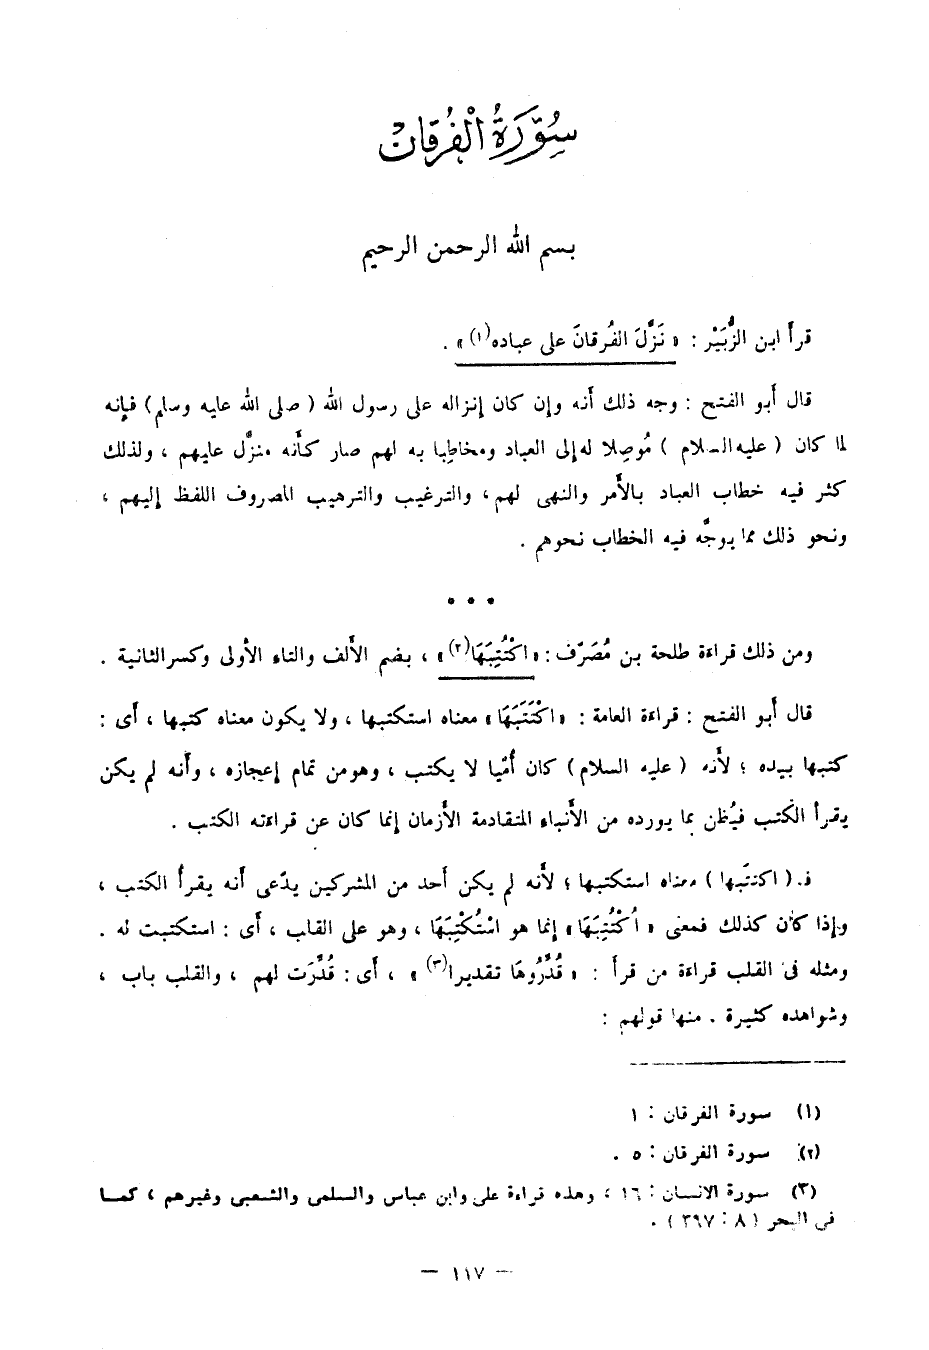 سُورَةُ الْفُرقان
بسم الله الرحمن الرحيم
قرأ ابن الزُّبَيْر : « نَزَّلَ الفُرقانَ على عباده(١) » .
قال أبو الفتح : وجه ذلك أنه وإن كان إنزاله على رسول الله ( صلى الله عليه وسلم) فإنه
لما كان ( عليه السلام ) مُوصِلا له إلى العباد ومخاطِبا به لهم صار كأَنه منزَّل عليهم ، ولذلك
كثر فيه خطاب العباد بالأَمر والنهى لهم، والترغيب والترهيب المصروف اللفظ إليهم ،
ونحو ذلك مما يوجَّه فيه الخطاب نحوهم .
• • •
ومن ذلك قراءة طلحة بن مُصَرِّف : « اكْتُتِبَهَا(٢) » ، بضم الأَلف والتاء الأُولى وكسر الثانية .
قال أبو الفتح : قراءة العامة : « اكْتَتَبَهَا » معناه استكتبها ، ولا يكون معناه كتبها ، أَى :
كتبها بيده ؛ لأَنه ( عليه السلام ) كان أُمّيا لا يكتب ، وهو من تمام إعجازه ، وأَنه لم يكن
يقرأ الكتب فيُظن بما يورده من الأَنباء المتقادمة الأَزمان إنما كان عن قراءته الكتب .
فـ ( اكتتبها ) معناه استكتبها ؛ لأَنه لم يكن أحد من المشركين يدّعى أنه يقرأُ الكتب ،
وإذا كان كذلك فمعنى « اُكْتُتِبَهَا » إنما هو اسْتُكْتِبَهَا ، وهو على القلب ، أَى : استكتبت له .
ومثله فى القلب قراءة من قرأ : « قُدِّرُوهَا تقديرا(٣) » ، أَى : قُدِّرَت لهم ، والقلب باب ،
وشواهده كثيرة . منها قولهم :
(١) سورة الفرقان : ١
(٢) سورة الفرقان : ٥ .
(٣) سورة الانسان : ١٦ ، وهذه قراءة على وابن عباس والسلمى والشعبى وغيرهم ، كمـا
فى البحر ( ٨ : ٣٩٧ ) .
— ١١٧ —